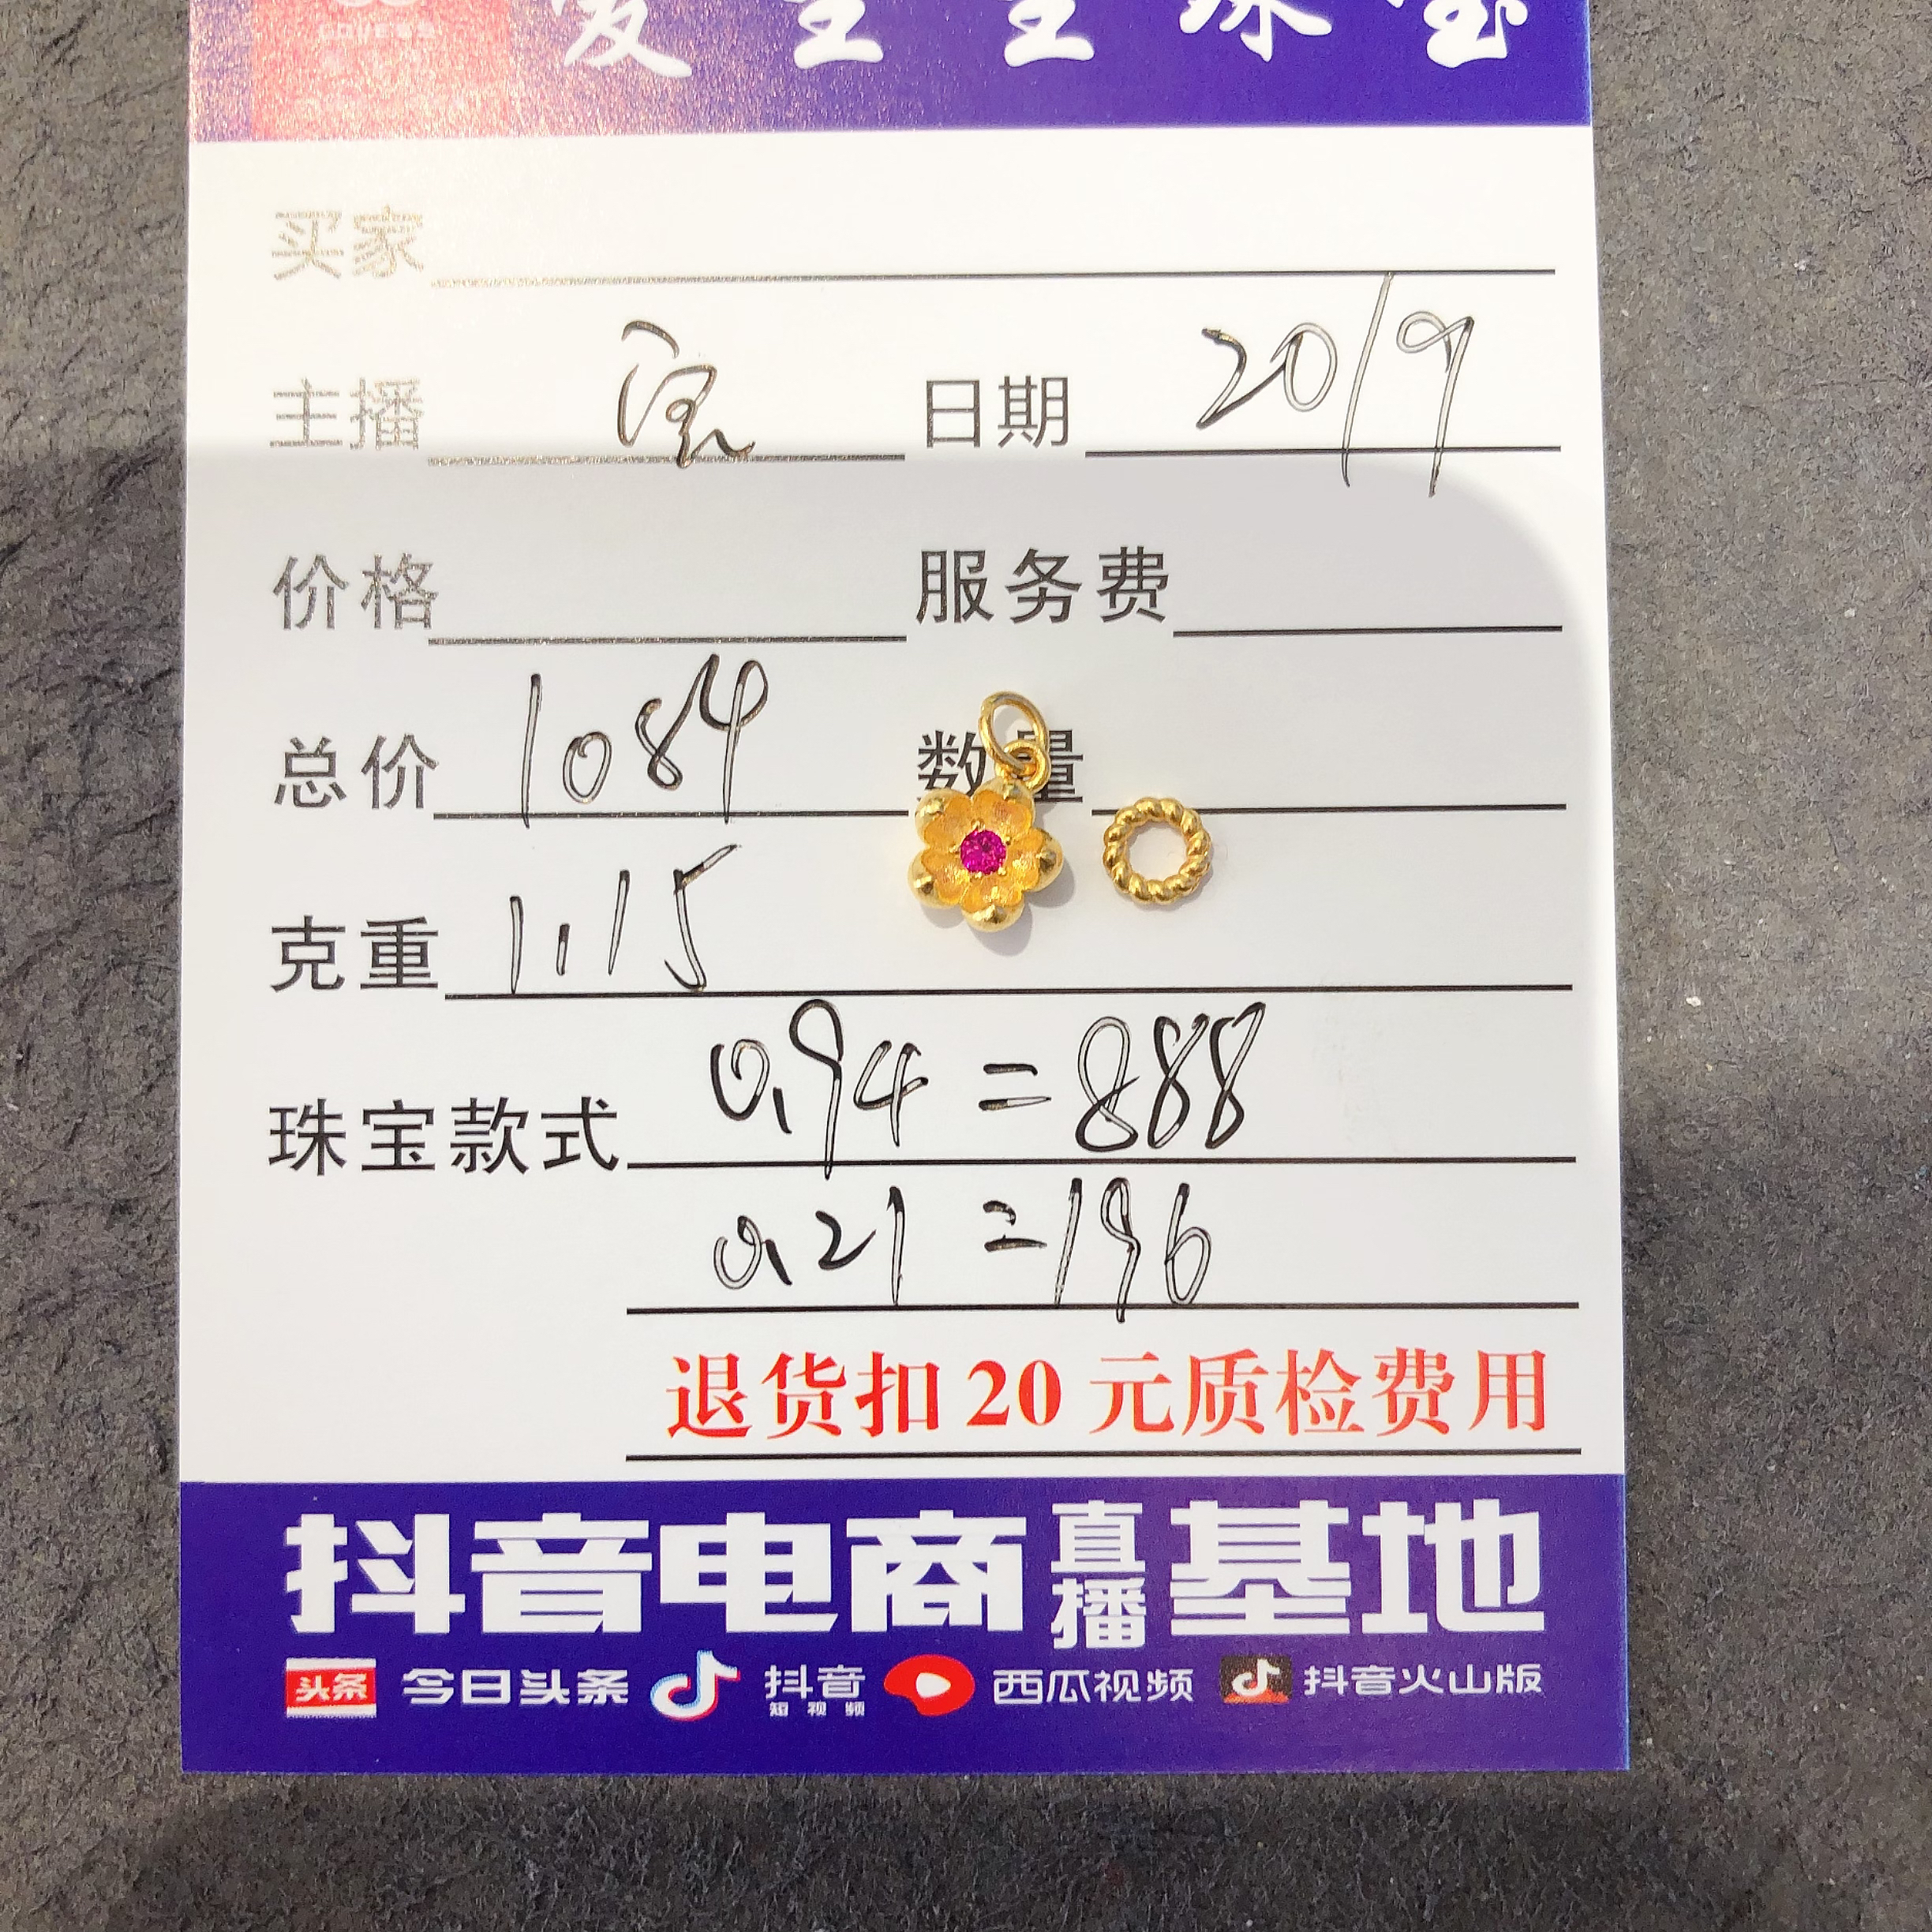 珠宝
买家
主播 日期 20/9
价格 服务费
总价 1084 数量
克重 1.15
珠宝款式 0.94 = 888
0.21 = 196
退货扣20元质检费用
抖音电商直播基地
头条 今日头条 抖音短视频 西瓜视频 抖音火山版